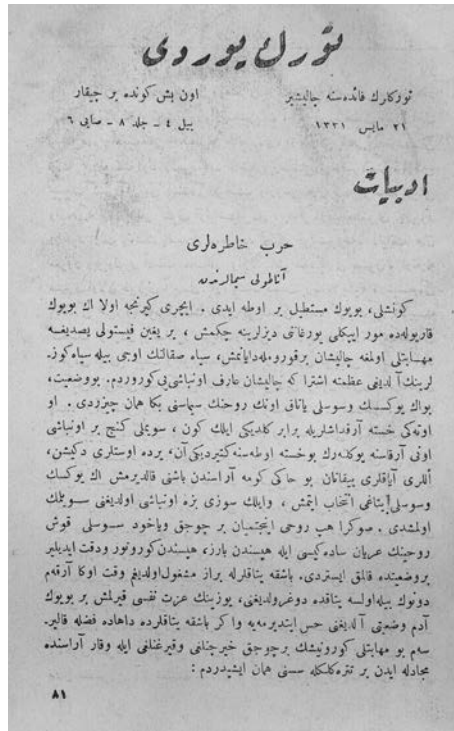 تورك يوردى
توركلرك فائده‌سنه چاليشير
اون بش كونده بر چيقار
٢١ مايس ١٣٣١
ييل ٤ ـ جلد ٨ ـ صايى ٦
ادبيات
حرب خاطره‌لرى
آناطولى سيمالرندن
كونشلى، بويوك مستطيل بر اوطه ايدى. ايچرى كيرنجه اولا اك بويوك
قاريولاده مور ايپكلى يورغانى ديزلرينه چكمش، بر يغين فيستولى يصديغه
مهابتلى اولمغه چاليشان بر قوروملە دايانمش، سياه صقالنك اوجى بيله سياه كوز
لرينك آلديغى عظمته اشترا كه چاليشان عارف اونباشى‌يى كوروردم. بو وضعيت،
بو اك يوكسك وسوسلى ياتاق اونك روحنك سيماسنى بكا همان چيزردى. او
اوته‌كى خسته آرقداشلريله برابر كلديكى ايلك كون، سويملى كنج بر اونباشى
اونى آرقاسنه يوكله‌رك بو خسته اوطه‌سنه كتيرديكى آن، يرده اوستلرى دكيشن،
اللرى آياقلرى ييقانان بو حاكى كومه آراسندن باشنى قالديرمش اك يوكسك
وسوسلى يتاغى انتخاب ايتمش، وايلك سوزى بزه اونباشى اولديغنى سويلمك
اولمشدى. صوكرا هپ روحى اينجتميان بر چوجق وياخود سوسلى قوش
روحينك عريان ساده‌كيسى ايله هپسندن بارز، هپسندن كورونور ودقت ايديلير
بر وضعيتده قالمق ايستردى. باشقه يتاقلرله براز مشغول اولديغم وقت اوكا آرقه‌م
دونوك بيله اولسه يتاقده دوغرولديغنى، يوزينك عزت نفسى قيرلمش بر بويوك
آدم وضعيتى آلديغنى حس ايتديرمه‌يه واكر باشقه يتاقلرده داهاده فضله قالير
سه‌م بو مهابتلى كورونيشك بر چوجق خيرچنلغى وقيرغنلغى ايله وقار آراسنده
مجادله ايدن بر تتره‌كلكله سسنى همان ايشيدردم:
٨١